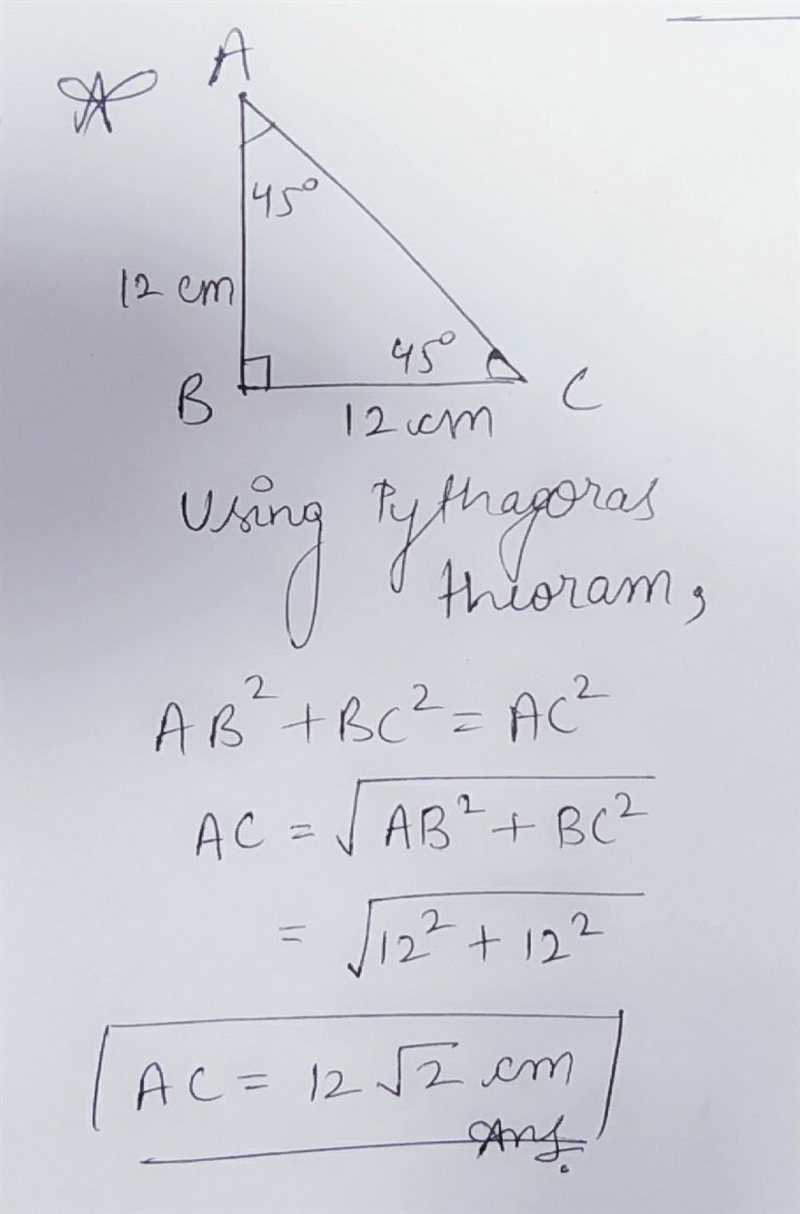 A
45°
12 cm
45°
B
C
12 cm
Using Pythagoras
theoram,
AB² + BC² = AC²
AC = √AB² + BC²
= √12² + 12²
AC = 12 √2 cm
Ans.